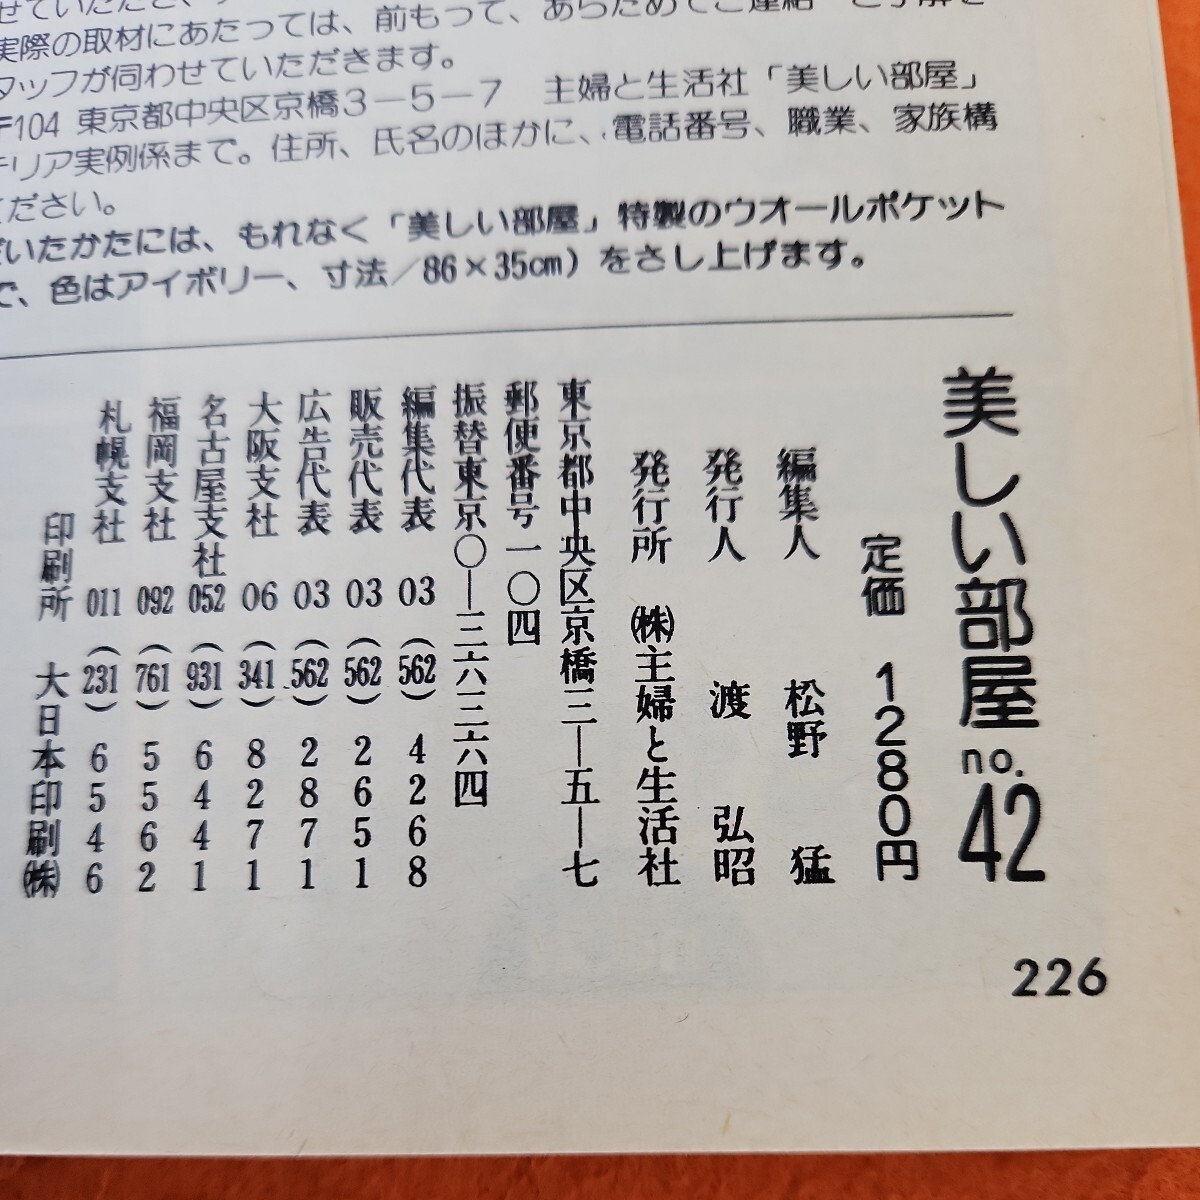 実際の取材にあたっては、前もって、あらためてご連絡
タッフが伺わせていただきます。
〒104 東京都中央区京橋3－5－7　主婦と生活社「美しい部屋」
テリア実例係まで。住所、氏名のほかに、電話番号、職業、家族構
ください。
いたかたには、もれなく「美しい部屋」特製のウオールポケット
で、色はアイボリー、寸法／86×35cm）をさし上げます。
美しい部屋 no.42
定価　1280円
編集人　松野　猛
発行人　渡　弘昭
発行所　㈱主婦と生活社
東京都中央区京橋三―五―七
郵便番号一〇四
振替東京〇―三六三六四
編集代表　03（562）4268
販売代表　03（562）2651
広告代表　03（562）2871
大阪支社　06（341）8271
名古屋支社　052（931）6441
福岡支社　092（761）5562
札幌支社　011（231）6546
印刷所　大日本印刷㈱
226